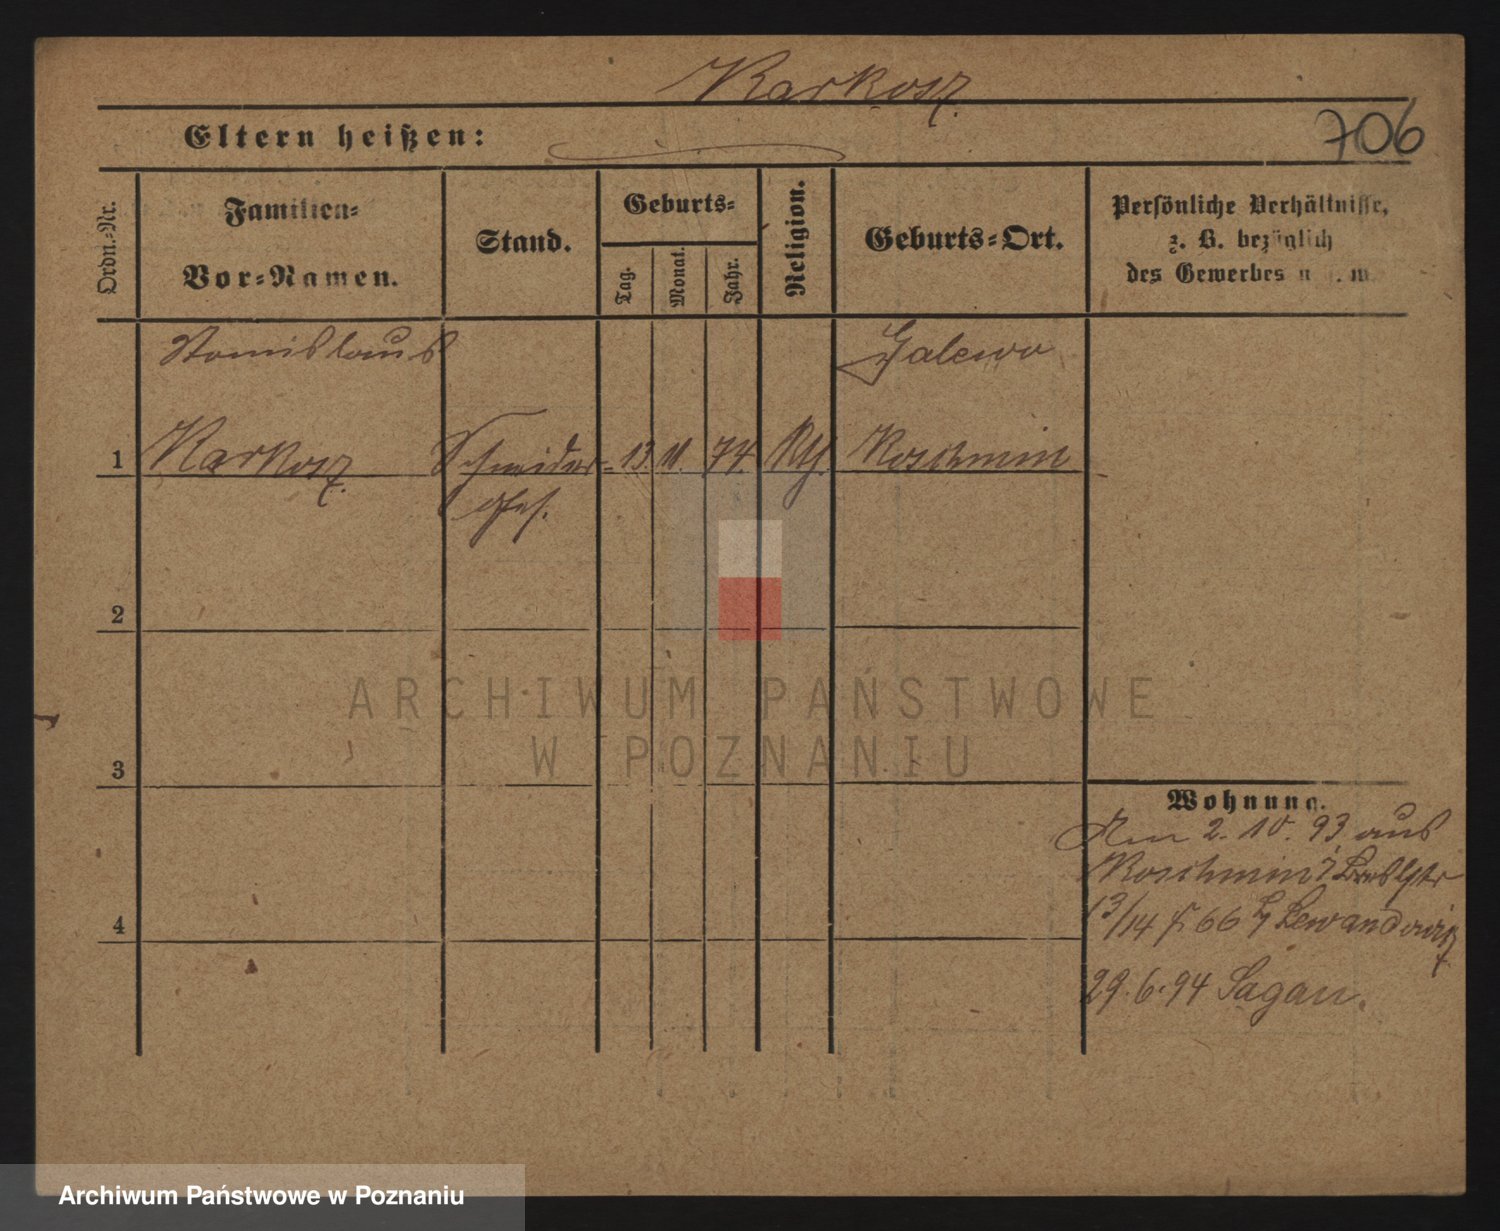 Karkosz.
Eltern heißen:
706
Ordn.-Nr.
Familien-
Vor-Namen.
Stand.
Geburts-
Tag.
Monat.
Jahr.
Religion.
Geburts-Ort.
Persönliche Verhältnisse,
z. B. bezüglich
des Gewerbes u. s. w.
Stanislaus
Galewo
1 Karkosz. Schneider- 13. 11. 74 Kth. Koschmin
ges.
2
3
4
Wohnung.
Am 2. 10. 93 aus
Koschmin
13/14 66 Lewandowicz
29.6.94 Sagan.
ARCHIWUM PAŃSTWOWE
W POZNANIU
Archiwum Państwowe w Poznaniu